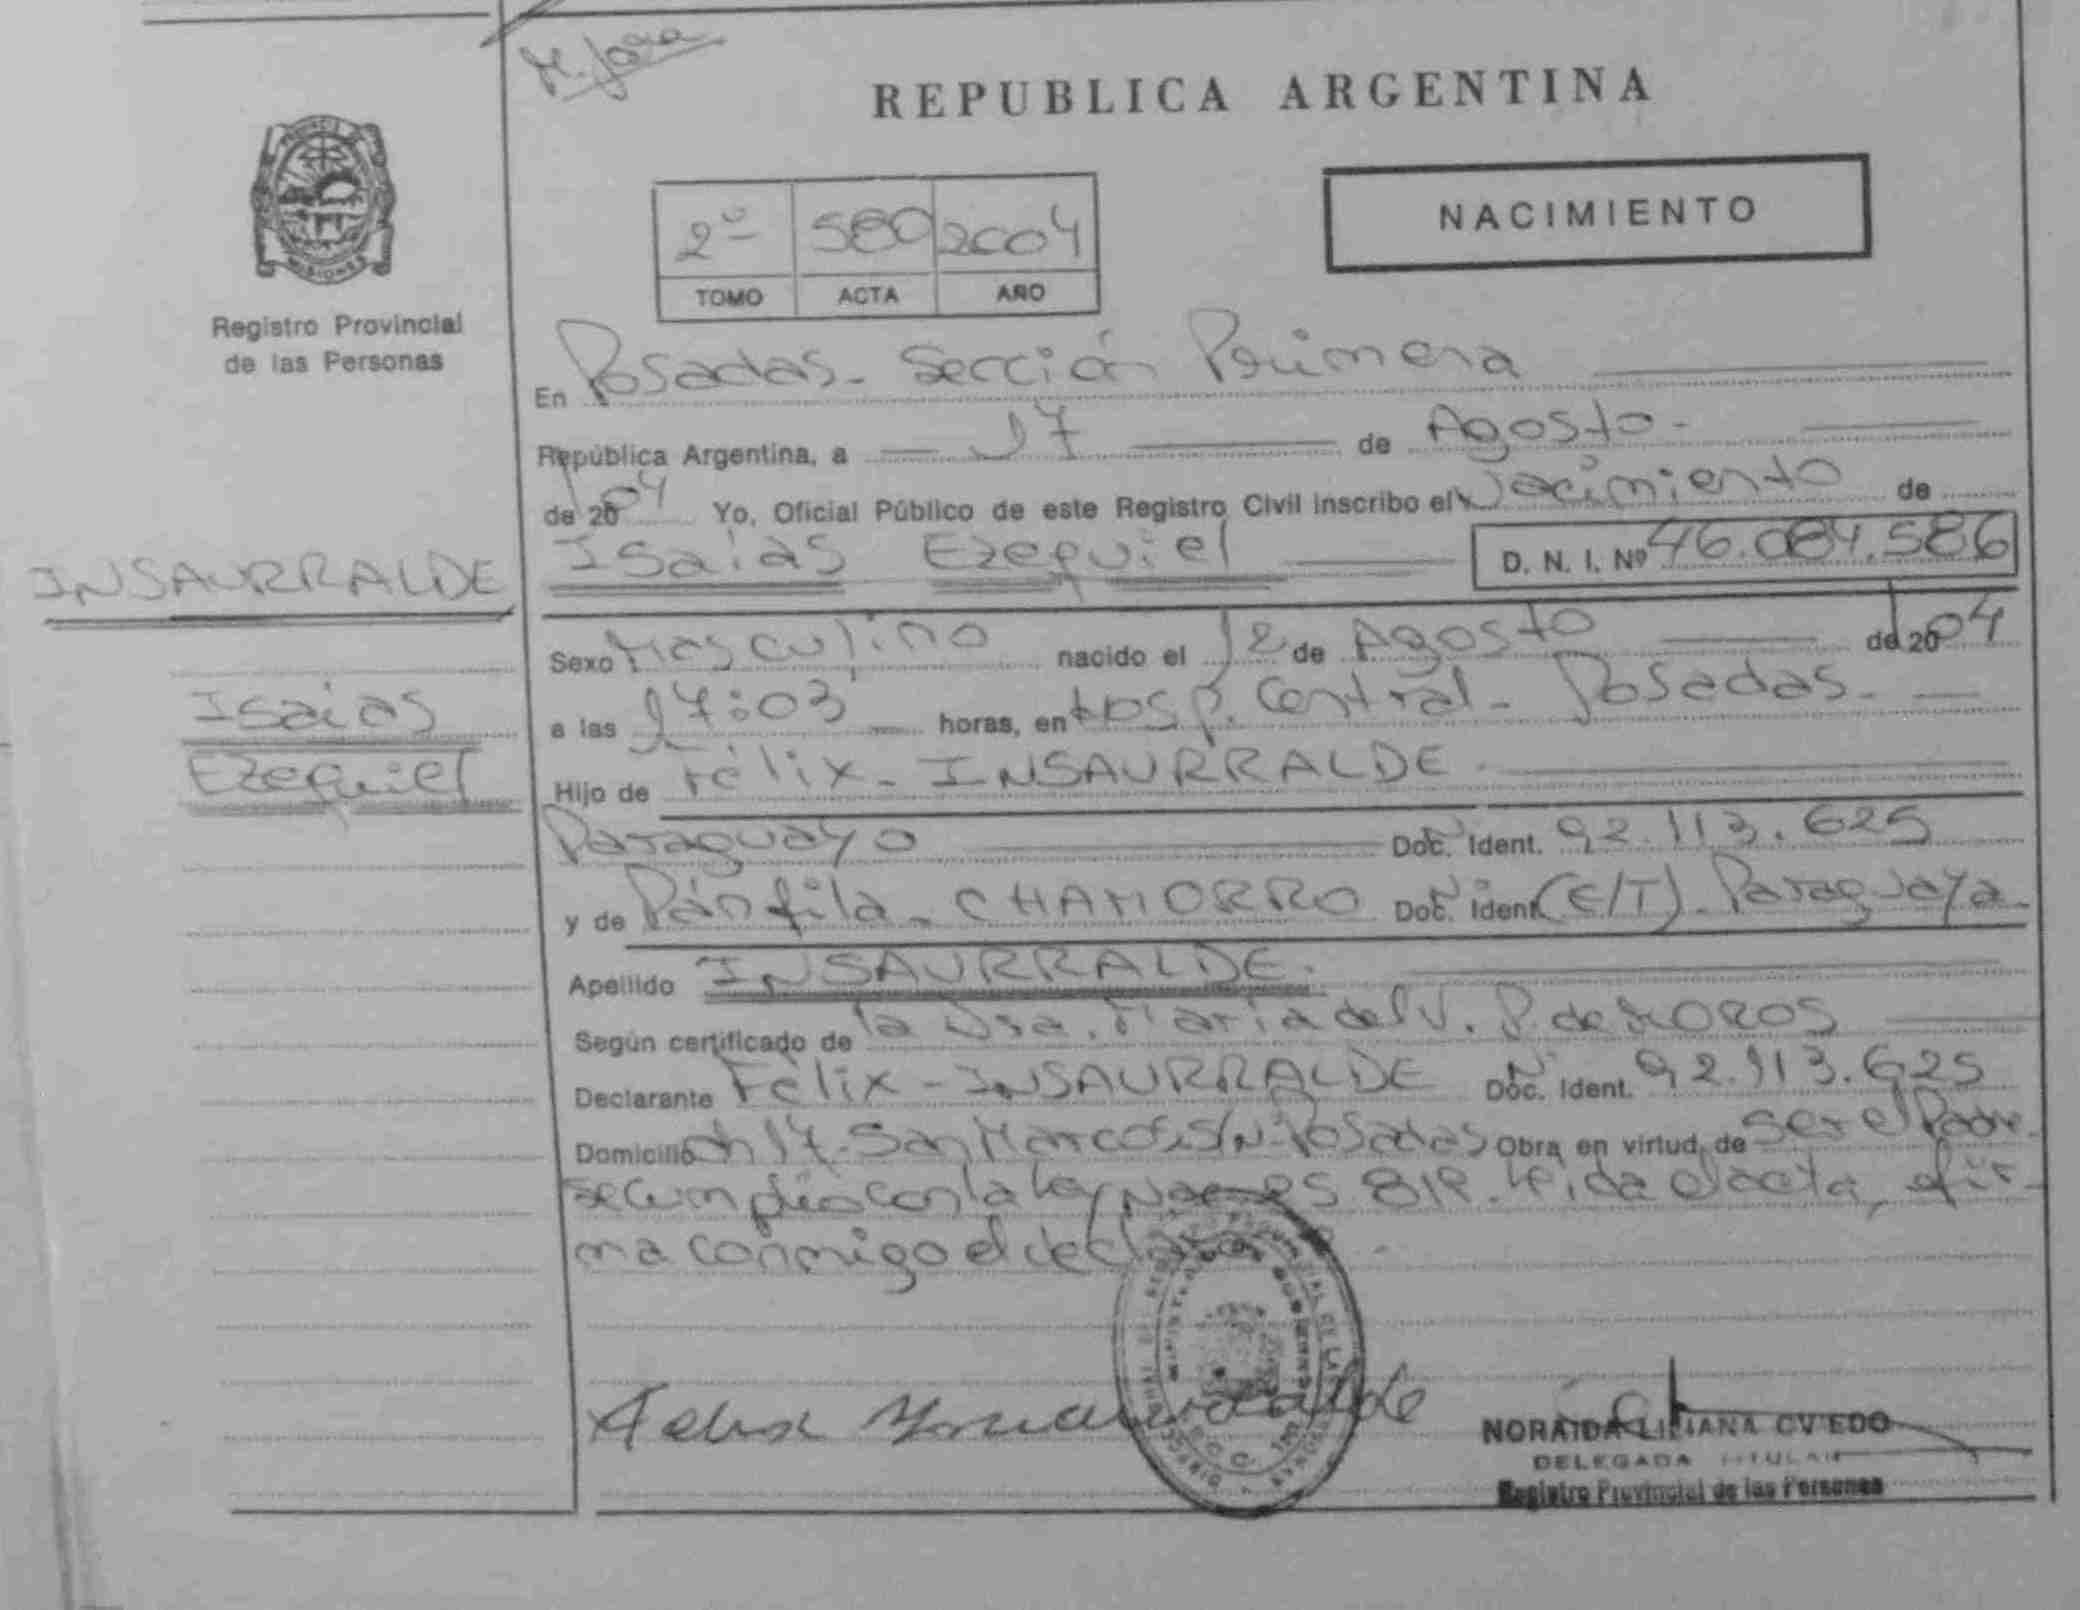 REPUBLICA ARGENTINA
MISIONES
Registro Provincial
de las Personas
2º 580 2004
TOMO ACTA AÑO
NACIMIENTO
En Posadas - Sección Primera
República Argentina, a 17 de Agosto -
de 2004 Yo, Oficial Público de este Registro Civil inscribo el Nacimiento de
Isaias Ezequiel D. N. I. Nº 46.084.586
INSAURRALDE
Isaias
Ezequiel
Sexo Masculino nacido el 12 de Agosto de 2004
a las 17:03 horas, en Hosp. Central - Posadas -
Hijo de Félix - INSAURRALDE
Paraguayo Doc. Ident. 92.113.625
y de Pánfila - CHAMORRO Doc. Ident (E/T) - Paraguaya -
Apellido INSAURRALDE.
Según certificado de la Dra. María del V. P. de MOROS
Declarante Félix - INSAURRALDE Doc. Ident. 92.113.625
Domicilio Ch 17 - San Marcos S/Nº Posadas Obra en virtud de ser el Padre
se cumplió con la Ley Leída el acta, a fir-
ma conmigo el
NORAIDA LILIANA OVIEDO
DELEGADA TITULAR
Registro Provincial de las Personas